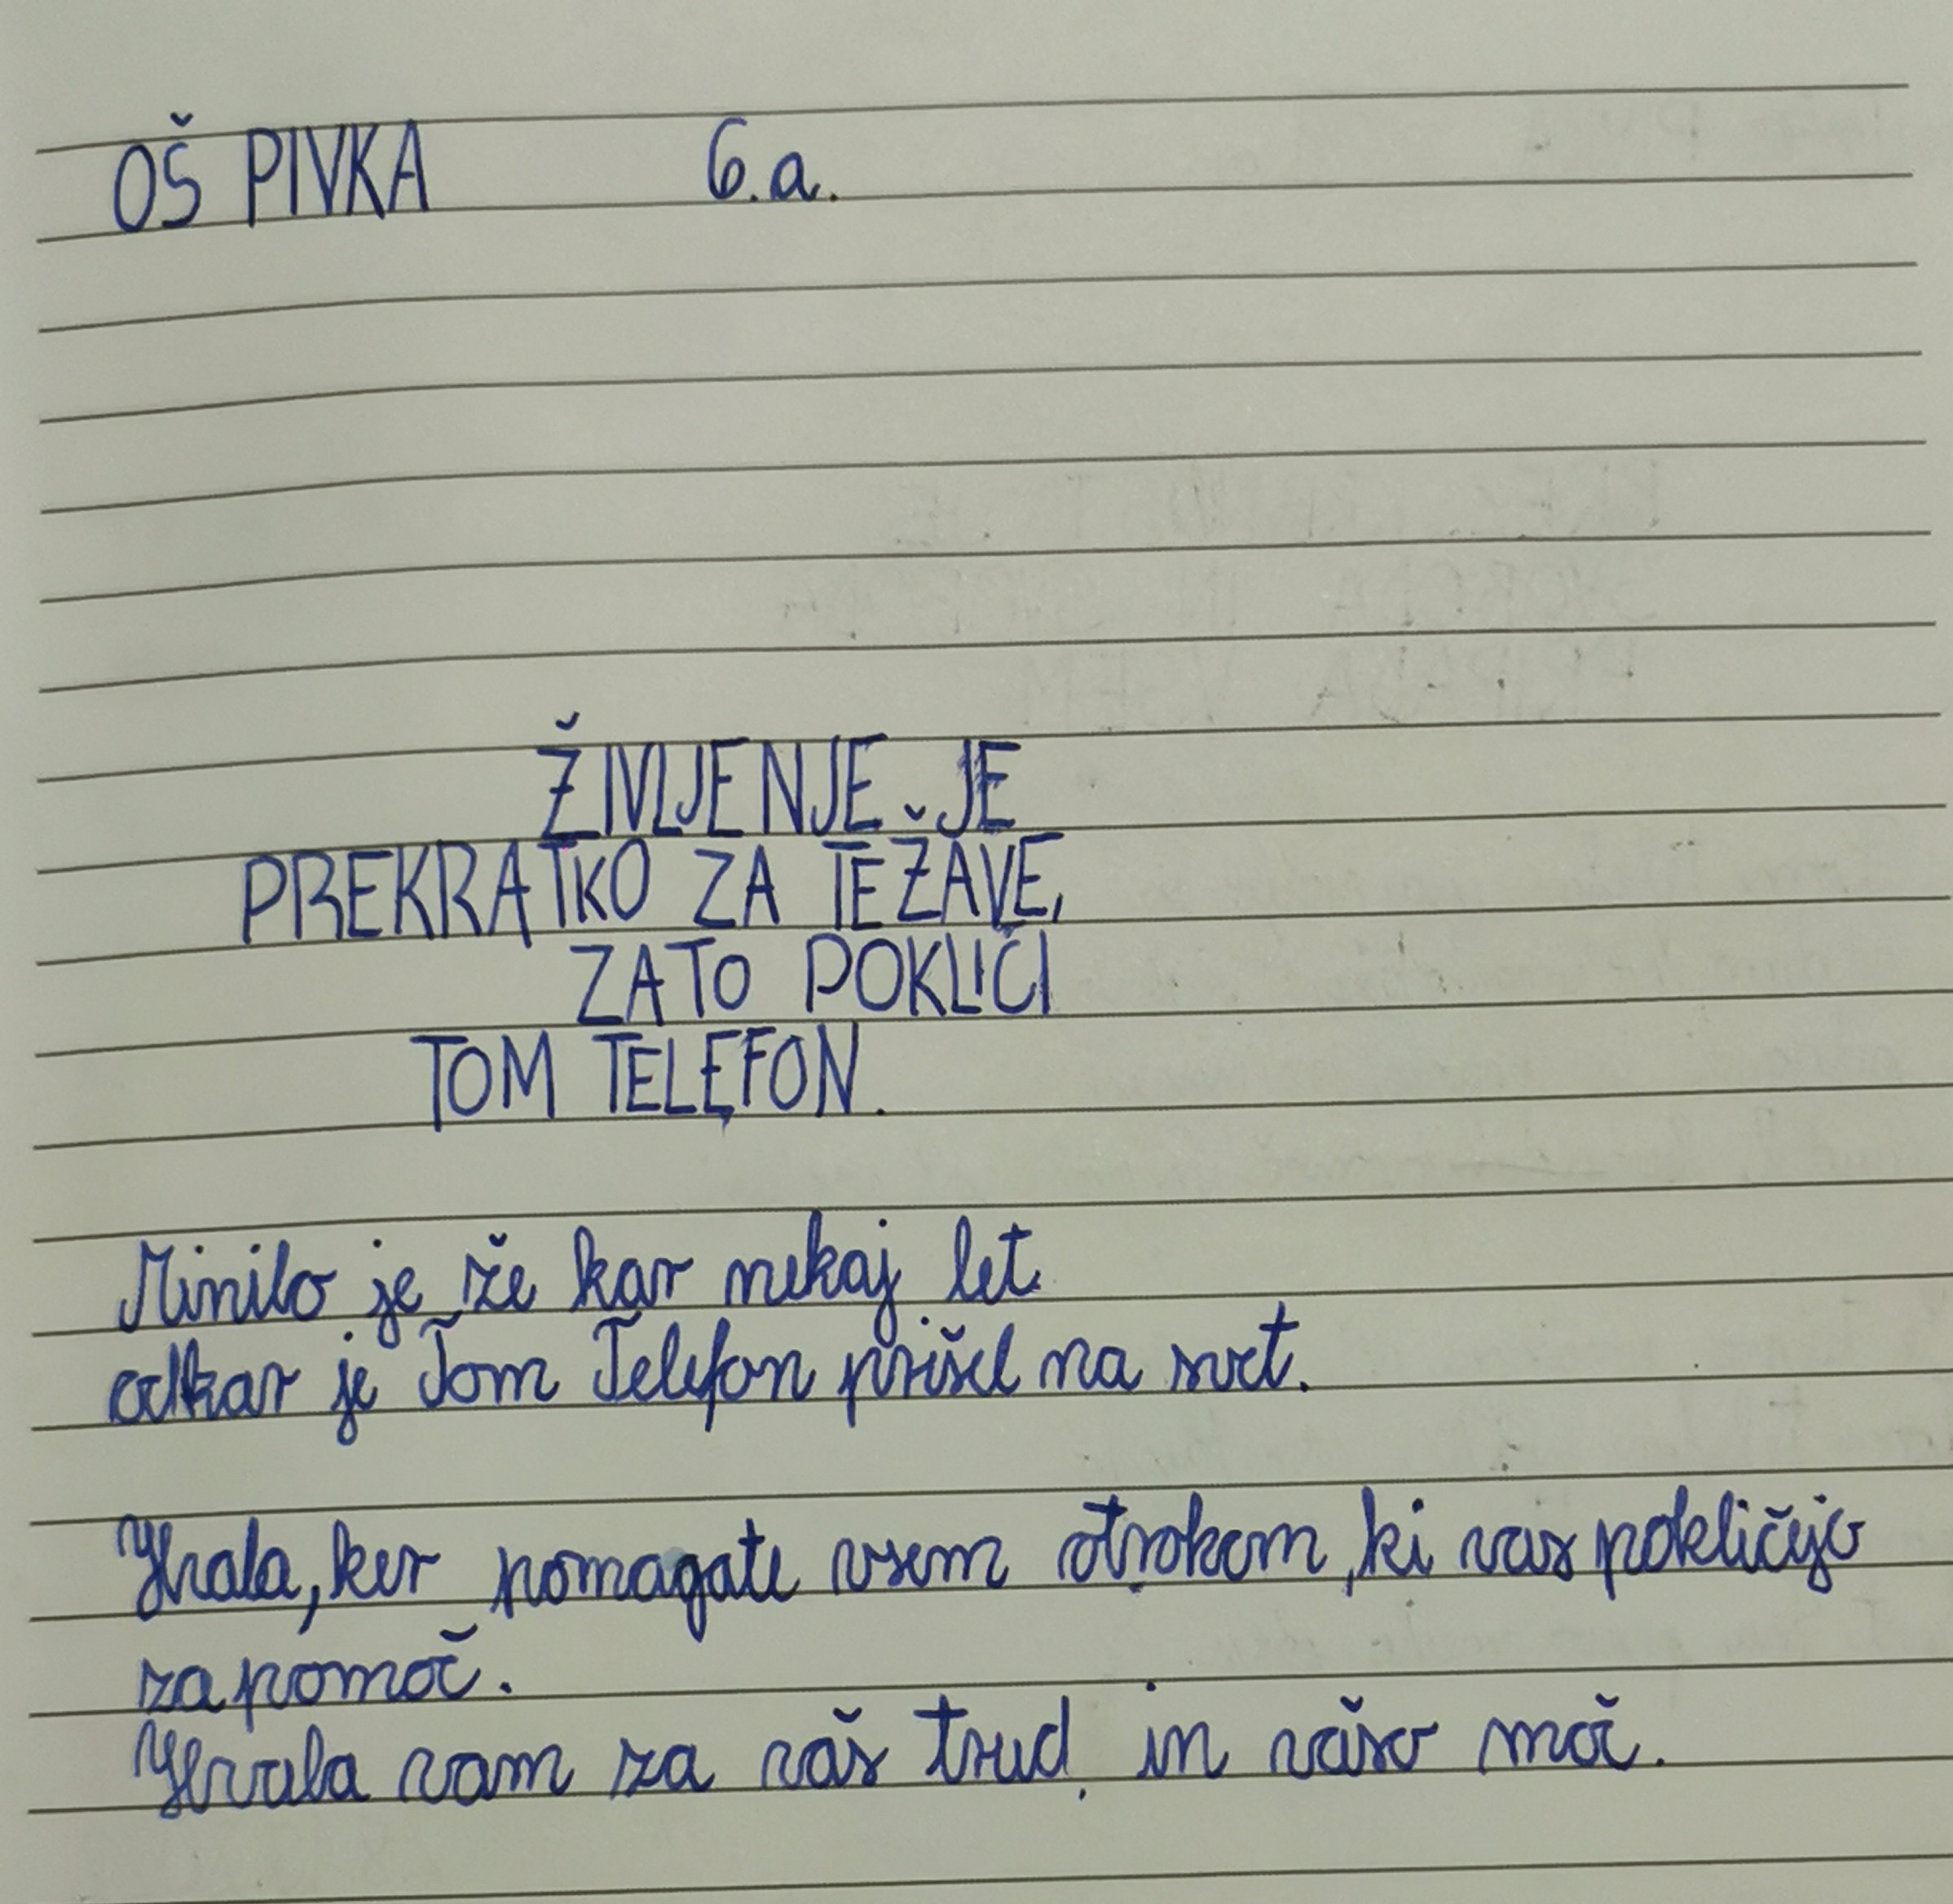 OŠ PIVKA 6.a.
ŽIVLJENJE JE
PREKRATKO ZA TEŽAVE,
ZATO POKLIČI
TOM TELEFON.
Minilo je že kar nekaj let
odkar je Tom Telefon prišel na svet.
Hvala, ker pomagate vsem otrokom, ki vas pokličejo
za pomoč.
Hvala vam za vaš trud in vašo moč.